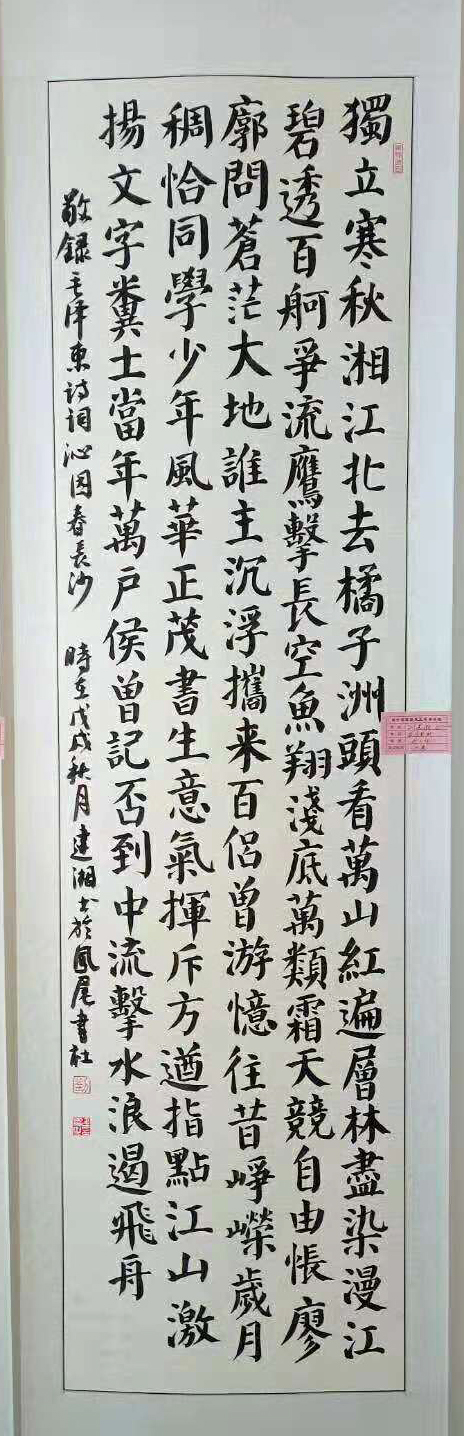 獨立寒秋湘江北去橘子洲頭看萬山紅遍層林盡染漫江
碧透百舸爭流鷹擊長空魚翔淺底萬類霜天競自由悵廖
廓問蒼茫大地誰主沉浮攜来百侣曾游憶往昔崢嶸歲月
稠恰同學少年風華正茂書生意氣揮斥方遒指點江山激
揚文字糞土當年萬户侯曾記否到中流擊水浪遏飛舟
敬録毛泽東诗词沁园春長沙 時在戊戌秋月建湘书於鳳尾書社